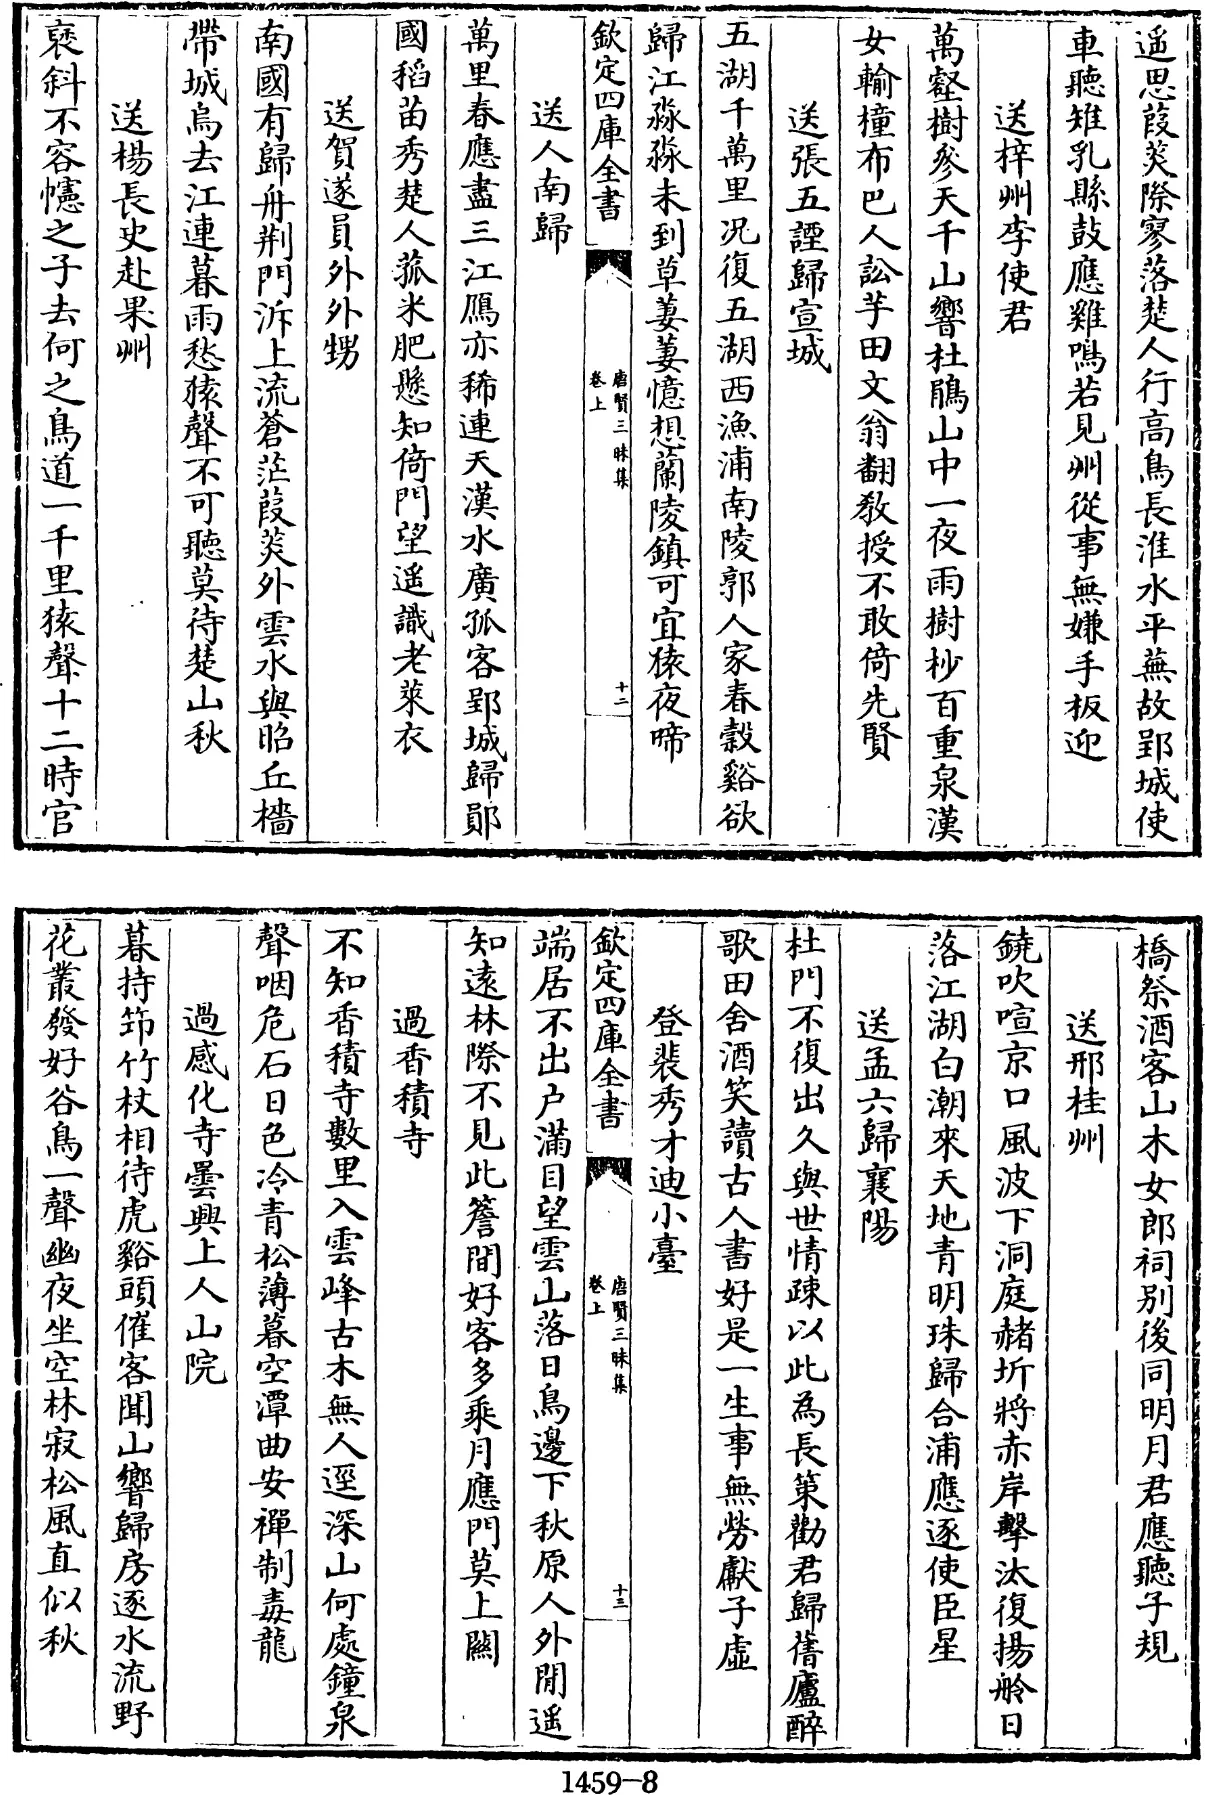 遥思葭菼際寥落楚人行髙鳥長淮水平蕪故郢城使
車聽雉乳縣鼓應雞鳴若見州從事無嫌手板迎
送梓州李使君
萬壑樹參天千山響杜鵑山中一夜雨樹杪百重泉漢
女輸橦布巴人訟芋田文翁翻教授不敢倚先賢
送張五諲歸宣城
五湖千萬里况復五湖西漁浦南陵郭人家春榖谿欲
歸江淼淼未到草萋萋憶想蘭陵鎮可宜猿夜啼
欽定四庫全書
唐賢三昧集
卷上
十二
送人南歸
萬里春應盡三江鴈亦稀連天漢水廣孤客郢城歸鄖
國稻苗秀楚人菰米肥懸知倚門望遥識老萊衣
送賀遂員外外甥
南國有歸舟荆門泝上流蒼茫葭菼外雲水與昭丘檣
帶城烏去江連暮雨愁猿聲不可聽莫待楚山秋
送楊長史赴果州
褒斜不容幰之子去何之鳥道一千里猿聲十二時官
橋祭酒客山木女郎祠别後同明月君應聽子規
送邢桂州
鐃吹喧京口風波下洞庭赭圻將赤岸擊汰復揚舲日
落江湖白潮來天地青明珠歸合浦應逐使臣星
送孟六歸襄陽
杜門不復出久與世情疎以此為長策勸君歸舊廬醉
歌田舍酒笑讀古人書好是一生事無勞獻子虛
登裴秀才迪小臺
欽定四庫全書
唐賢三昧集
卷上
十三
端居不出户滿目望雲山落日鳥邊下秋原人外閒遥
知逺林際不見此簷間好客多乘月應門莫上關
過香積寺
不知香積寺數里入雲峰古木無人逕深山何處鐘泉
聲咽危石日色冷青松薄暮空潭曲安禪制毒龍
過感化寺曇興上人山院
暮持笻竹杖相待虎谿頭催客聞山響歸房逐水流野
花叢發好谷鳥一聲幽夜坐空林寂松風直似秋
1459-8